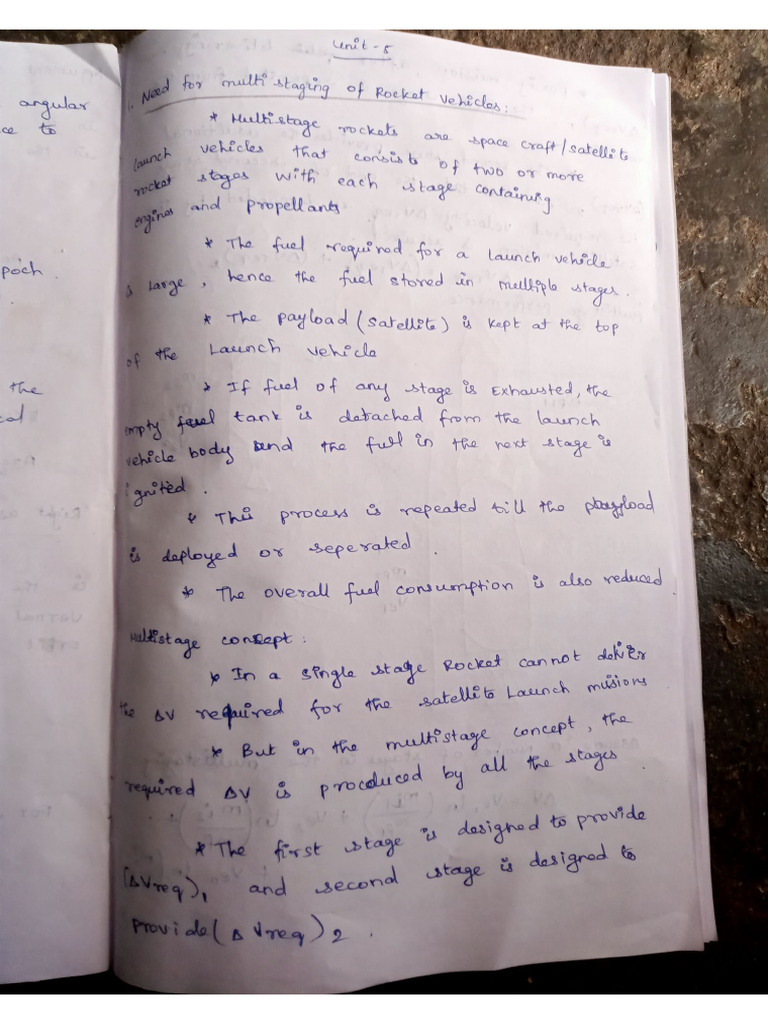 angular
ce to
poch.
the
cal
Unit - 5
1. Need for multi staging of Rocket vehicles:
* Multistage rockets are space craft/satellite
launch vehicles that consists of two or more
rocket stages with each stage containing
engines and propellants
* The fuel required for a launch vehicle
is large, hence the fuel stored in multiple stages.
* The payload (satellite) is kept at the top
of the Launch vehicle
* If fuel of any stage is Exhausted, the
empty fuel tank is detached from the launch
vehicle body and the full in the next stage is
ignited.
* This process is repeated till the payload
is deployed or seperated.
* The overall fuel consumption is also reduced.
Multistage concept:
* In a single stage Rocket cannot deliver
the ΔV required for the satellite Launch missions
* But in the multistage concept, the
required ΔV is produced by all the stages.
* The first stage is designed to provide
(ΔVreq)1 and second stage is designed to
provide (ΔVreq)2.